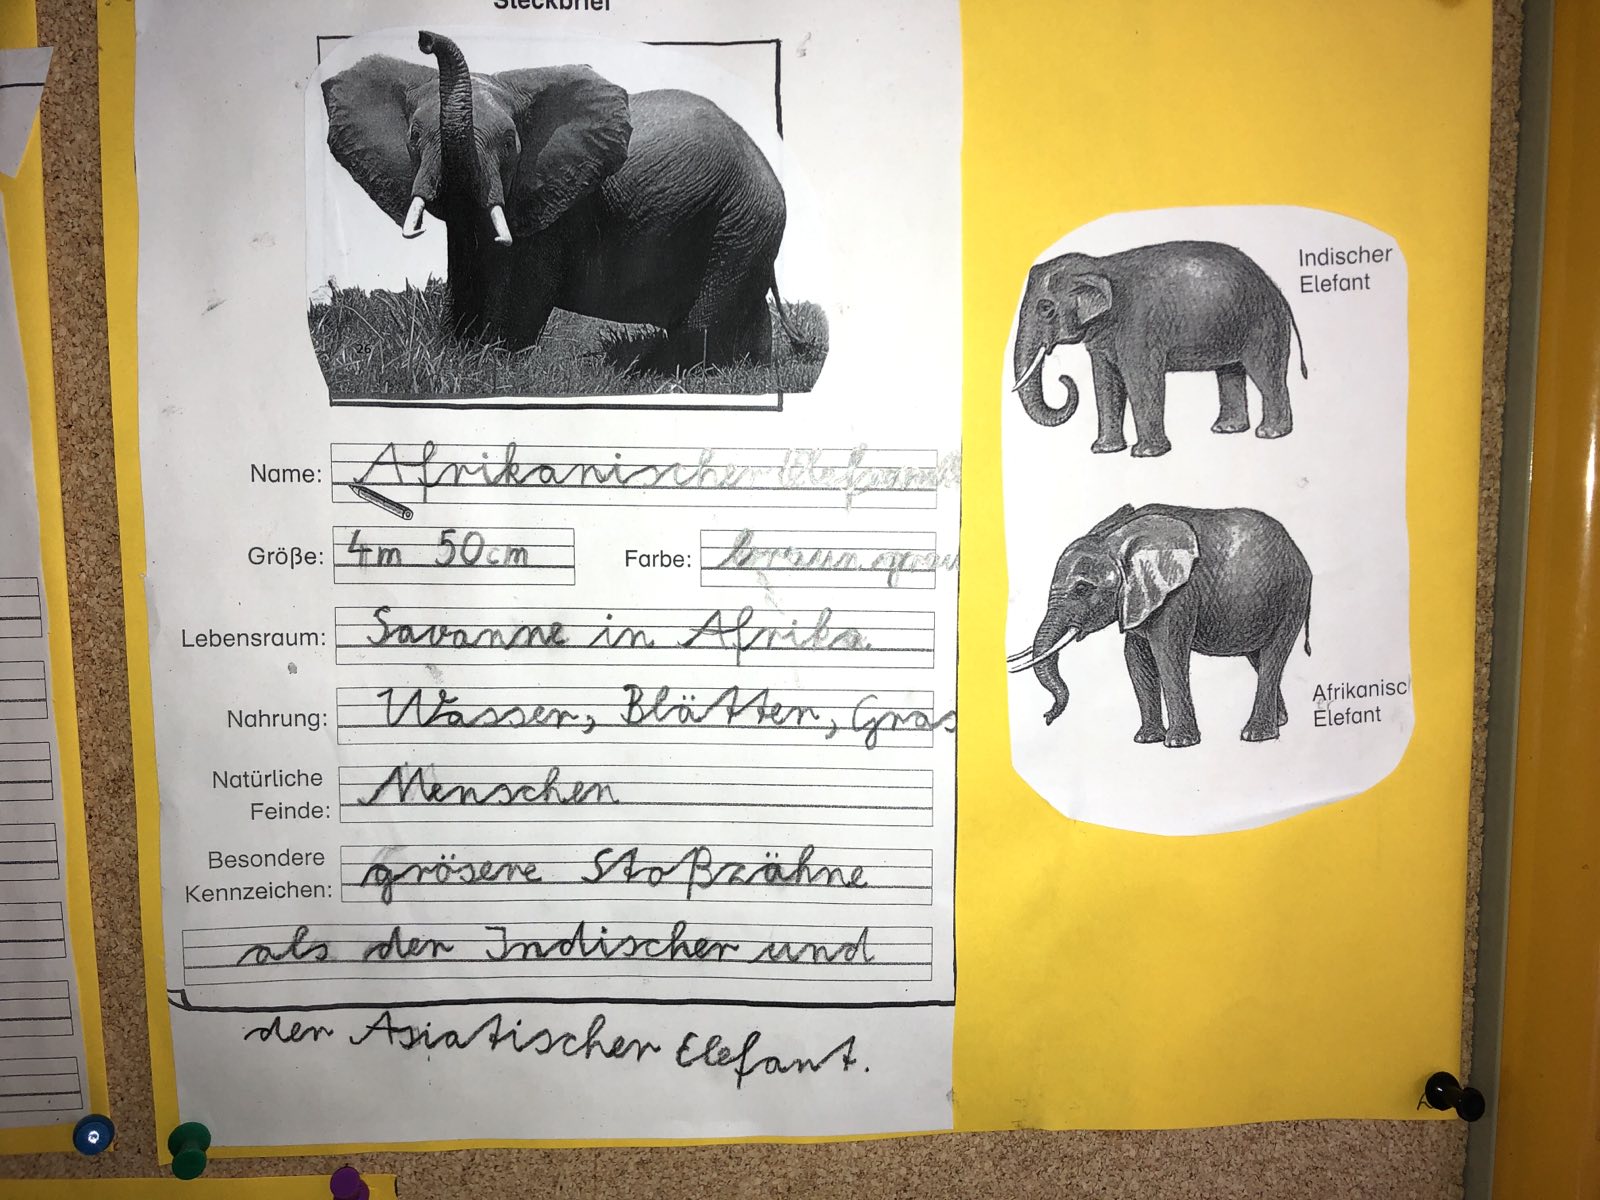 Steckbrief
26
Name: Afrikanischer Elefant
Größe: 4m 50cm Farbe: braun grau
Lebensraum: Savanne in Afrika
Nahrung: Wasser, Blätter, Gras
Natürliche
Feinde: Menschen
Besondere
Kennzeichen: grösere Stoßzähne
als der Indischer und
der Asiatischer Elefant.
Indischer
Elefant
Afrikanisc
Elefant